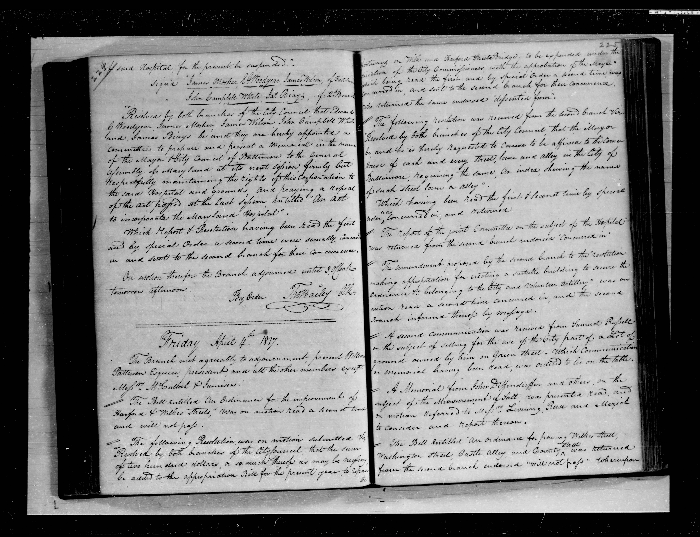 of said Hospital for the present be suspended."
Signed James Mosher
John Campbell White
"Resolved by both branches of the City Council that
G. Woodyear, James Mosher, James Wilson, John Campbell White
and James be and they are hereby appointed a
committee to prepare and present a Memorial in the name
of the Mayor & City Council of Baltimore to the General
Assembly of Maryland at its next session firmly but
respectfully maintaining the rights of this Corporation to
the said Hospital and grounds, and praying a repeal
of the act passed at the last session entitled "An Act
to incorporate the Maryland Hospital".
Which Report & Resolution having been read the first
and by special Order a second time were severally concurred
in and sent to the second branch for their concurrence.
On motion therefore the Branch adjourned until 3 O'Clock
tomorrow afternoon
By Order
Friday April 4th 1827.
The Branch met agreeably to adjournment, present William
Patterson Esquire, president and all the other members except
Messrs McCulloh &
The Bill entitled An Ordinance for the improvement of
Harford & Wilkes Streets, was on motion read a second time
and will not pass.
The following Resolution was on motion submitted Viz
Resolved by both branches of the City Council that the sum
of two hundred dollars, or so much thereof as may be required
be added to the appropriation Bill for the present year to
on Wilk and Harford Streets Bridges, to be expended under the
direction of the City Commissioners with the approbation of the Mayor
which being read the first and by special order a second time, was
concurred in and sent to the second branch for their concurrence,
was returned the same endorsed dissented from.
The following resolution was received from the second branch Viz
Resolved by both branches of the City Council that the Mayor
be and he is hereby requested to cause to be affixed to the
of each and every street, lane and alley in the City of
Baltimore requiring the same, an index shewing the name
of such street lane or alley".
Which having been read the first & second time by special
order, was concurred in, and returned
The report of the joint Committee on the subject of the Hospital
was returned from the second branch endorsed "concurred in"
The amendment proposed by the second branch to the resolution
making application for erecting a suitable building to secure the
ordnance &c belonging to the City and Volunteer Artillery" was on
motion read a second time concurred in, and the second
branch informed thereof by message.
A second communication was received from Samuel
on the subject of selling for the use of the City part of a Lot of
ground owned by him on Green street. Which Communication
or Memorial having been read, was ordered to lie on the table
A Memorial from John and others, on the
subject of the Measurement of Salt, was presented read, and
on motion referred to Messrs and
to consider and report thereon.
The Bill entitled "An ordinance for paving Wilkes Street
Washington Street Castle Alley and was returned
from the second branch endorsed "will not pass" whereupon